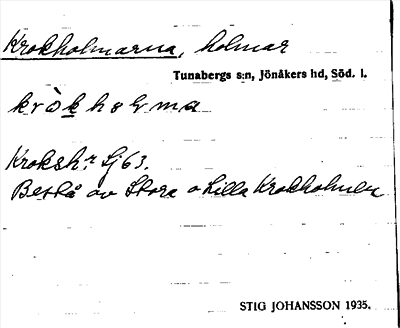 Krokholmarna, holmar
Tunabergs s:n, Jönåkers hd, Söd. l.
kròkholma
Sj 63.
Består av Stora o Lilla Krokholmen
STIG JOHANSSON 1935.